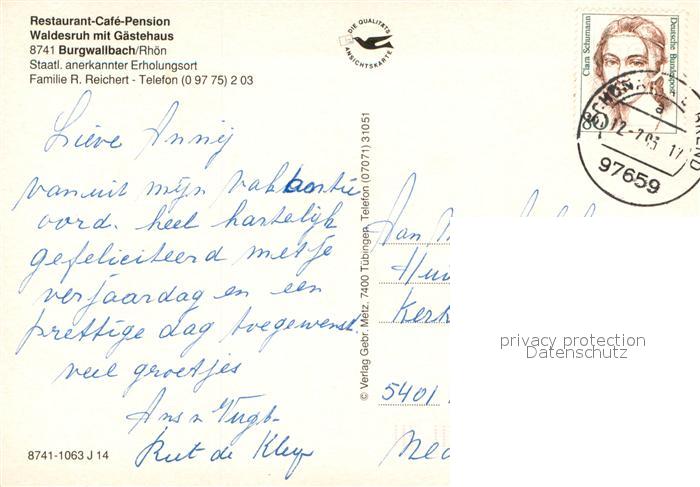 Restaurant-Café-Pension
Waldesruh mit Gästehaus
8741 Burgwallbach/Rhön
Staatl. anerkannter Erholungsort
Familie R. Reichert - Telefon (0 97 75) 2 03
DIE QUALITÄTS
ANSICHTSKARTE
Clara Schumann
Deutsche Bundespost
80
a
97659
Lieve Annij
vanuit mijn vakantie
oord. heel hartelijk
gefeliciteerd met je
verjaardag en een
prettige dag toegewenst.
veel groetjes
8741-1063 J 14
© Verlag Gebr. Metz, 7400 Tübingen, Telefon (07071) 31051
Aan
5401
privacy protection
Datenschutz